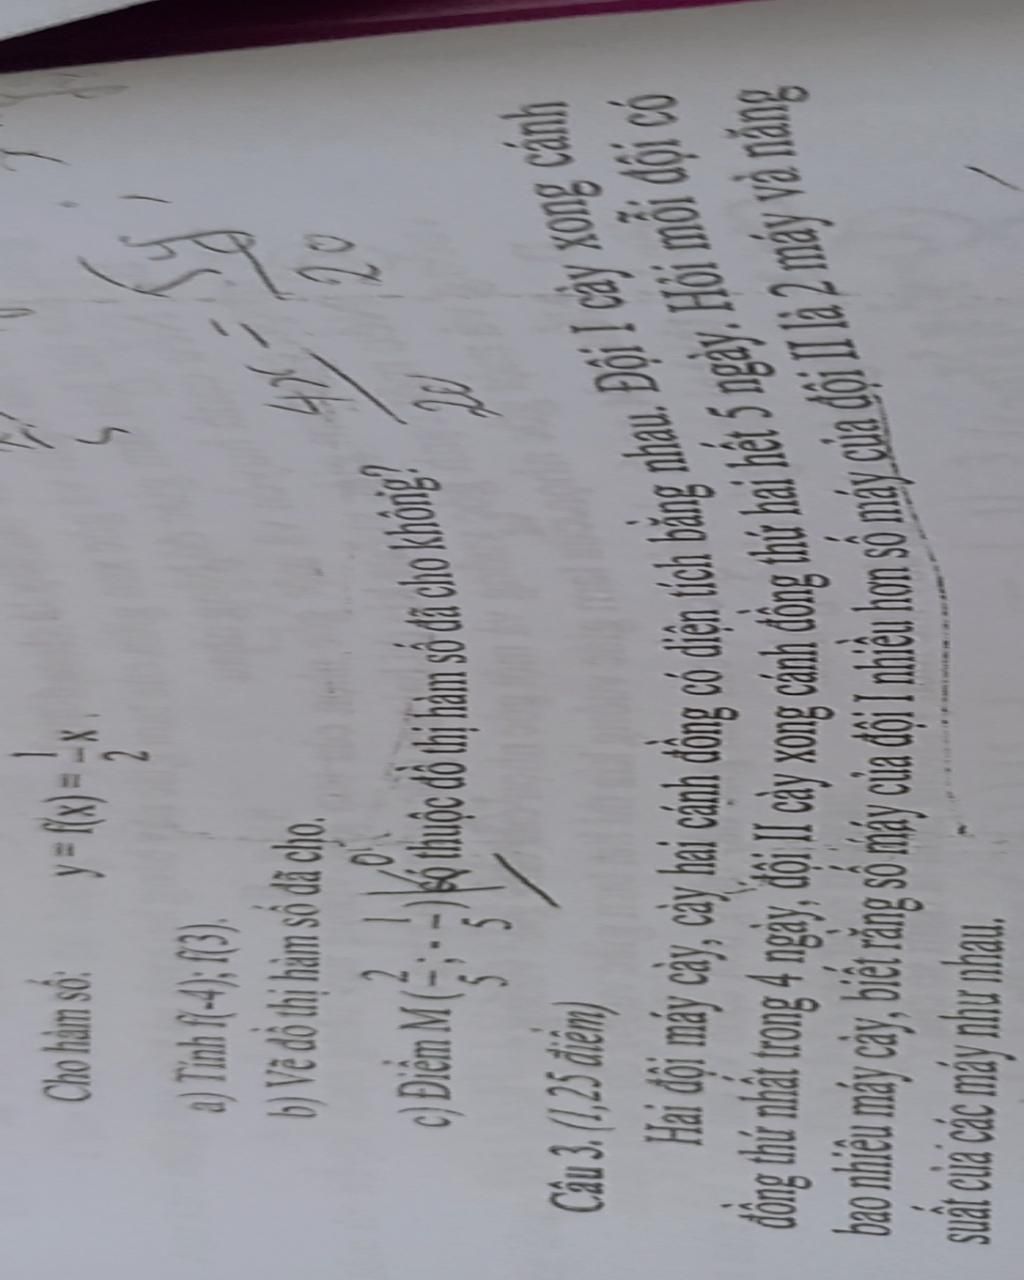 Cho hàm số: y = f(x) = 1/2 x .
a) Tính f(-4); f(3).
b) Vẽ đồ thị hàm số đã cho.
4x = 5y
20 20
c) Điểm M (2/5 ; - 1/5) có thuộc đồ thị hàm số đã cho không?
Câu 3. (1,25 điểm)
Hai đội máy cày, cày hai cánh đồng có diện tích bằng nhau. Đội I cày xong cánh
đồng thứ nhất trong 4 ngày, đội II cày xong cánh đồng thứ hai hết 5 ngày. Hỏi mỗi đội có
bao nhiêu máy cày, biết rằng số máy của đội I nhiều hơn số máy của đội II là 2 máy và năng
suất của các máy như nhau.